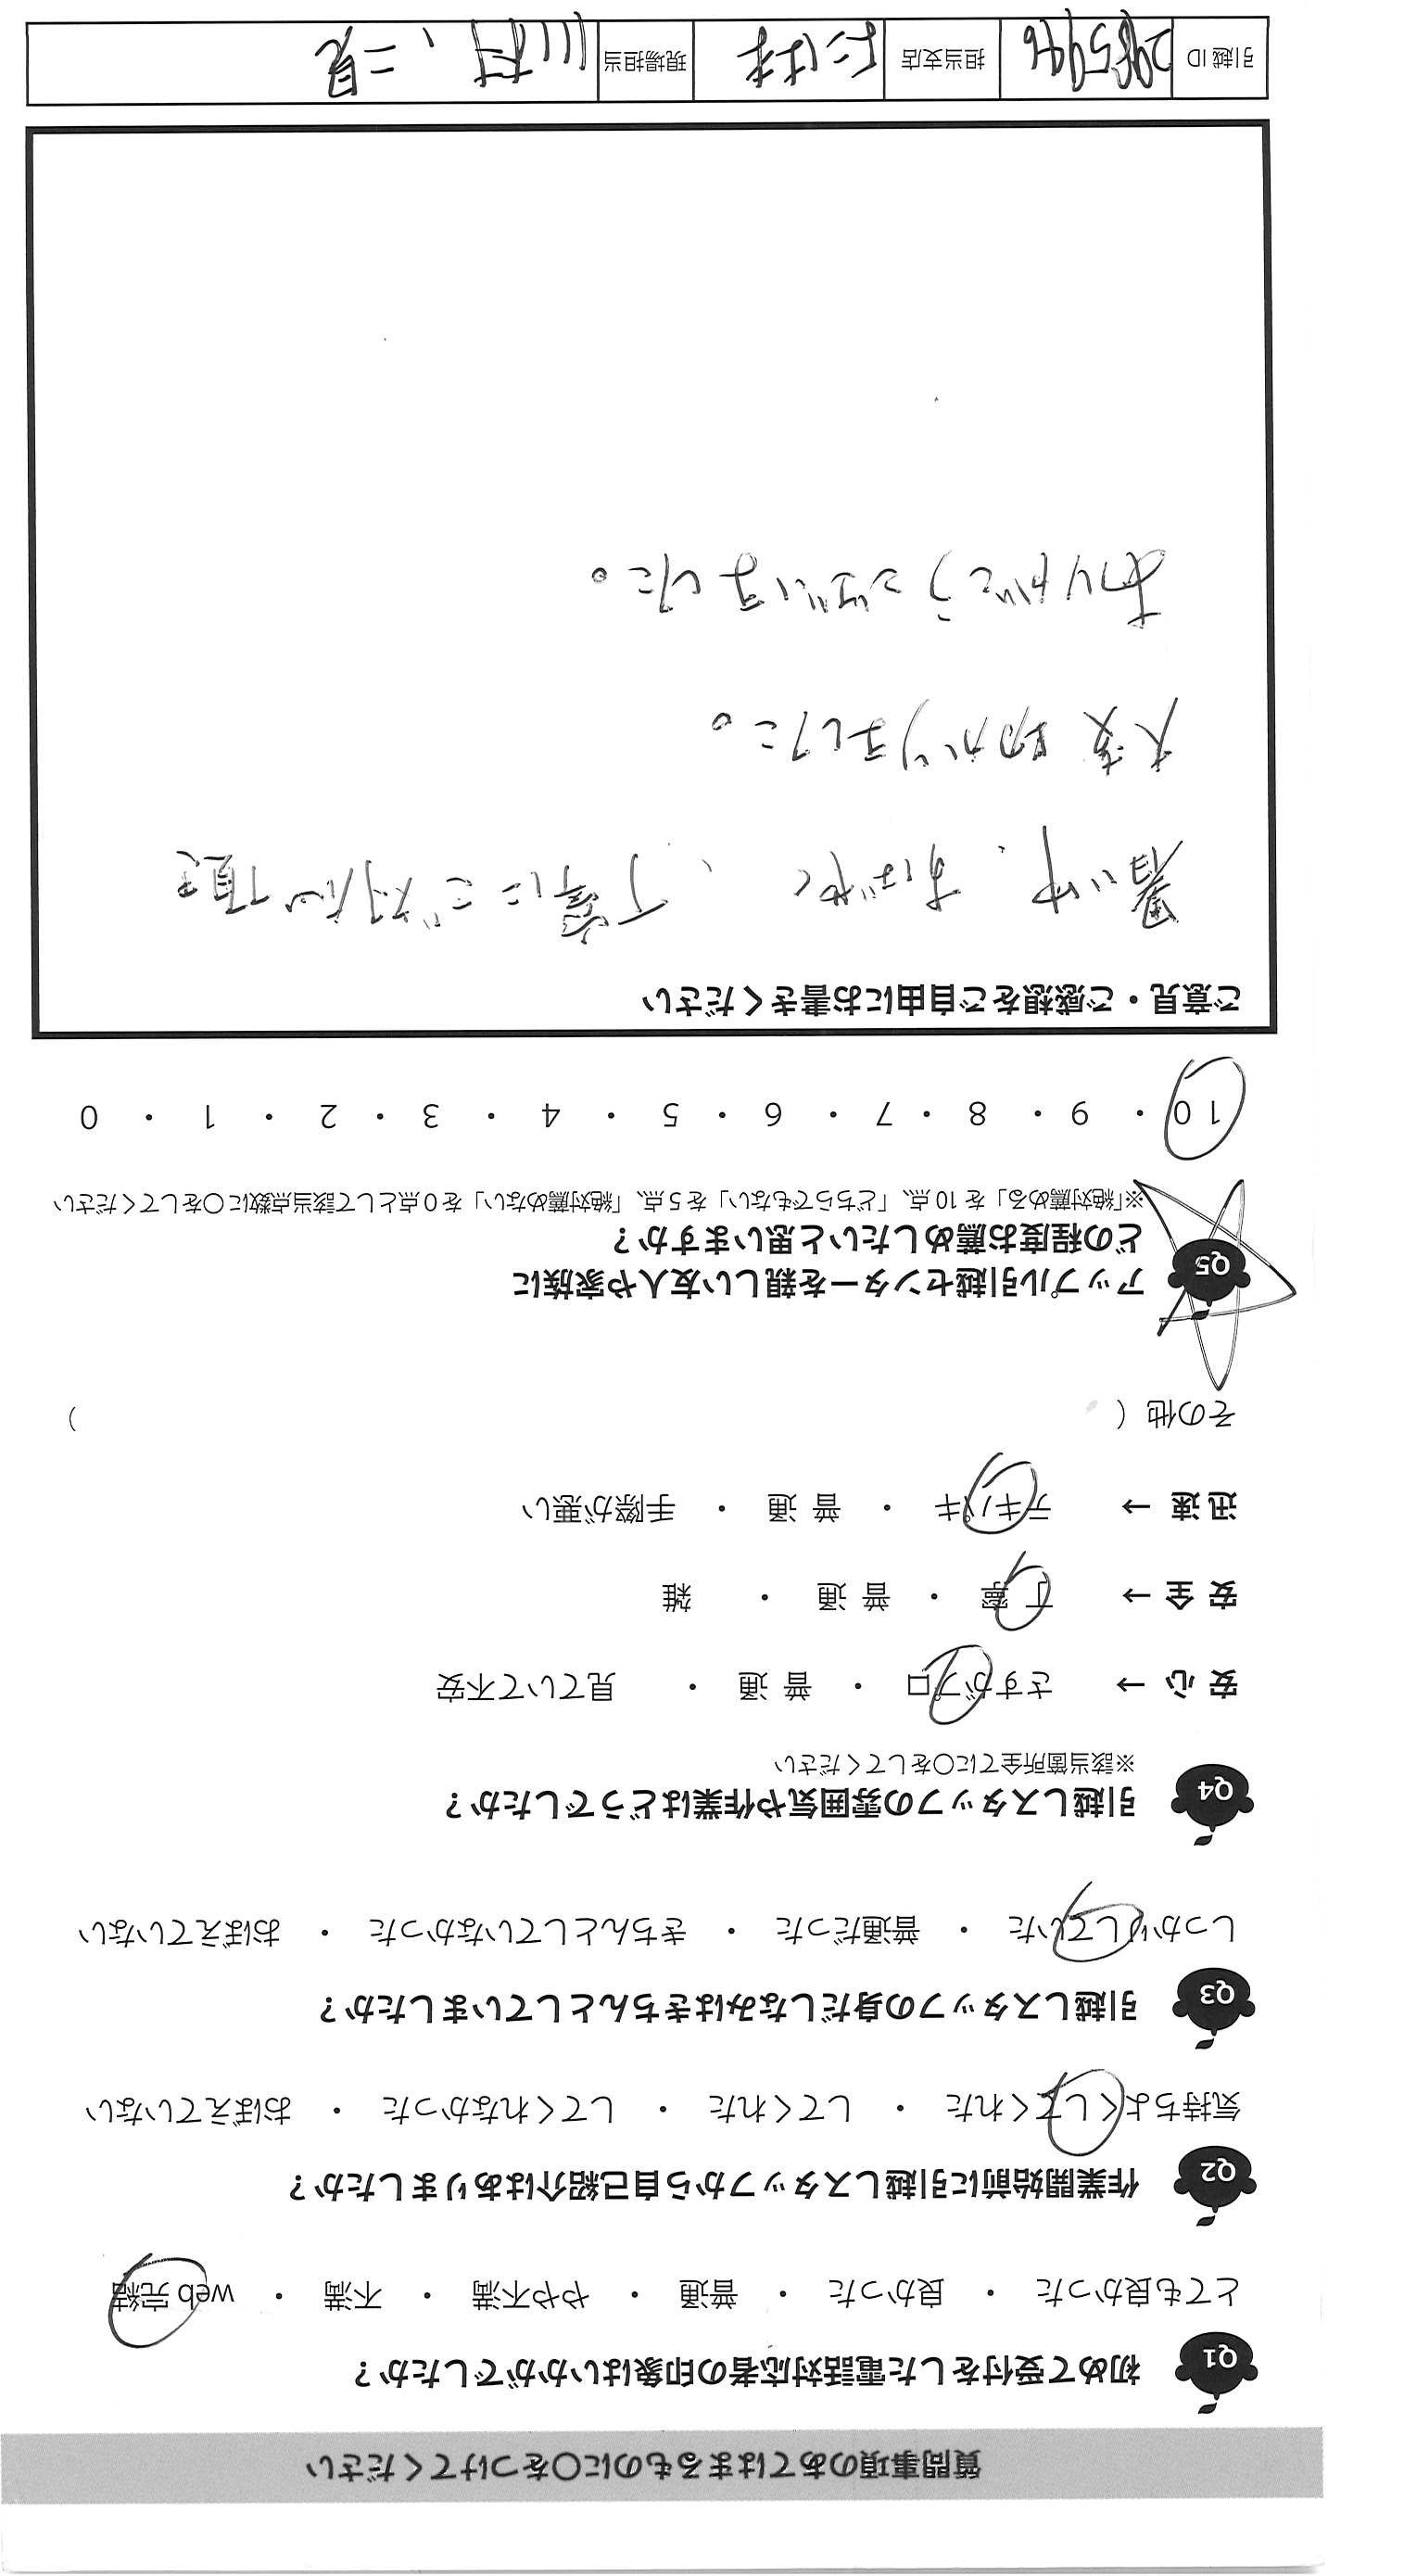 質問事項のあてはまるものに〇をつけてください
Q1 初めて受付をした電話対応者の印象はいかがでしたか?
とても良かった ・ 良かった ・ 普通 ・ やや不満 ・ 不満 ・ web 完結
Q2 作業開始前に引越しスタッフから自己紹介はありましたか?
気持ちよくしてくれた ・ してくれた ・ してくれなかった ・ おぼえていない
Q3 引越しスタッフの身だしなみはきちんとしていましたか?
しっかりしていた ・ 普通だった ・ きちんとしていなかった ・ おぼえていない
Q4 引越しスタッフの雰囲気や作業はどうでしたか?
※該当箇所全てに〇をしてください
安心 → さすがプロ ・ 普通 ・ 見ていて不安
安全 → 丁寧 ・ 普通 ・ 雑
迅速 → テキパキ ・ 普通 ・ 手際が悪い
その他 ( )
Q5 アップル引越センターを親しい友人や家族に
どの程度お薦めしたいと思いますか?
※「絶対薦める」を 10 点、「どちらでもない」を 5 点、「絶対薦めない」を 0 点として該当点数に〇をしてください
10 ・ 9 ・ 8 ・ 7 ・ 6 ・ 5 ・ 4 ・ 3 ・ 2 ・ 1 ・ 0
ご意見・ご感想をご自由にお書きください
暑い中、すばやく、丁寧にご対応頂き
大変助かりました。
ありがとうございました。
引越 ID 2985946 担当支店 現場担当 川村、二見